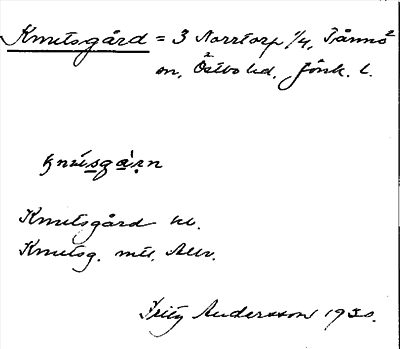 Knutsgård = 3 Norrtorp 1/4, Tånnö
sn, Östbo hd, Jönk. l.
knu̇sgȧṛn
Knutsgård kb.
Knutsg. mtl. Allv.
Fritz Andersson 1930.